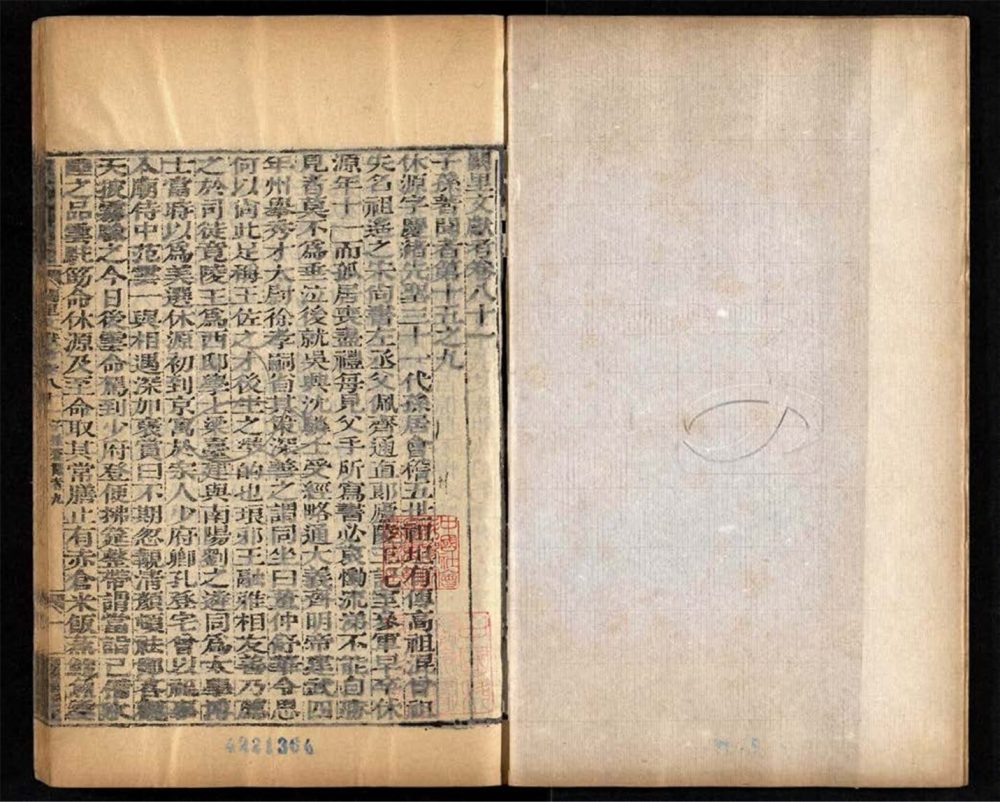 闕里文獻考卷八十一
子孫著聞者第十五之九
休源字慶緒先聖三十一代孫居會稽五世祖坦有傳高祖混曾祖
失名祖遙之宋尚書左丞父佩齊通直郎廬陵王記室參軍早卒休
源年十一而孤居喪盡禮每見父手所寫書必哀慟流涕不能自勝
見者莫不爲垂泣後就吳興沈驎士受經略通大義齊明帝建武四
年州舉秀才太尉徐孝嗣省其策深善之謂同坐曰董仲舒華令思
何以尚此足稱王佐之才後生之準的也琅邪王融雅相友善乃薦
之於司徒竟陵王爲西邸學士梁臺建與南陽劉之遴同爲太學博
士當時以爲美選休源初到京寓於宗人少府卿孔登宅曾以祀事
入廟侍中范雲一與相遇深加褒賞曰不期忽覯清顏頓祛鄙吝觀
天披霧驗之今日後雲命駕到少府登便拂筵整帶謂當詣己備水
陸之品雲駐筯命休源及至命取其常膳止有赤倉米飯蒸鮑魚雲
4221364